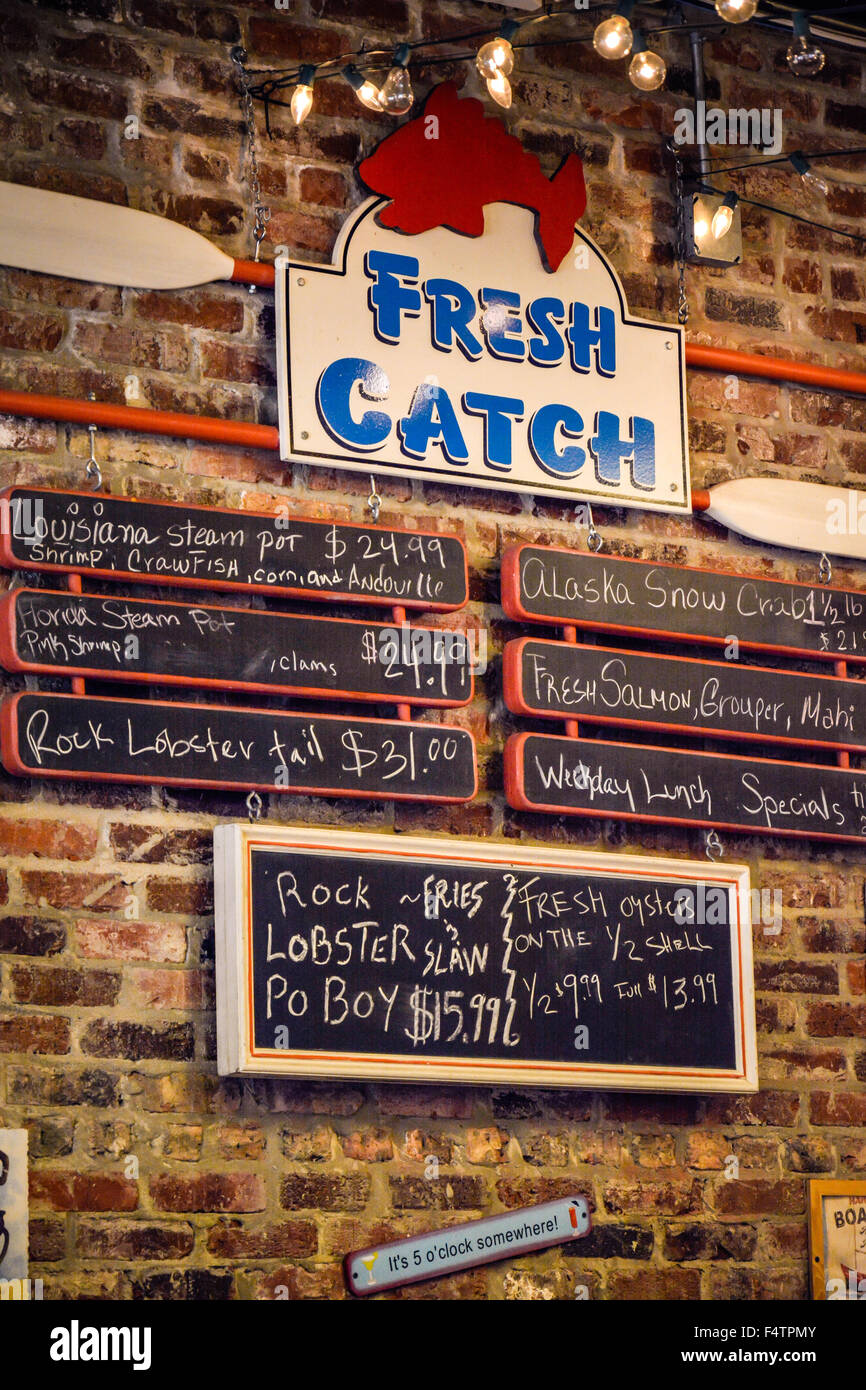 FRESH
CATCH
Louisiana Steam pot $24.99
Shrimp, CrawFISH, corn, and Andouille
Florida Steam Pot
Pink Shrimp , clams $24.99
Rock Lobster tail $31.00
Alaska Snow Crab 1 1/2 lb
Fresh Salmon, Grouper, Mahi
Weekday Lunch Specials
Rock ~ FRIES
LOBSTER & SLAW
PO BOY $15.99
FRESH oysters
ON THE 1/2 SHELL
1/2 $9.99 Full $13.99
It's 5 o'clock somewhere!
BOA
alamy
Image ID: F4TPMY
www.alamy.com